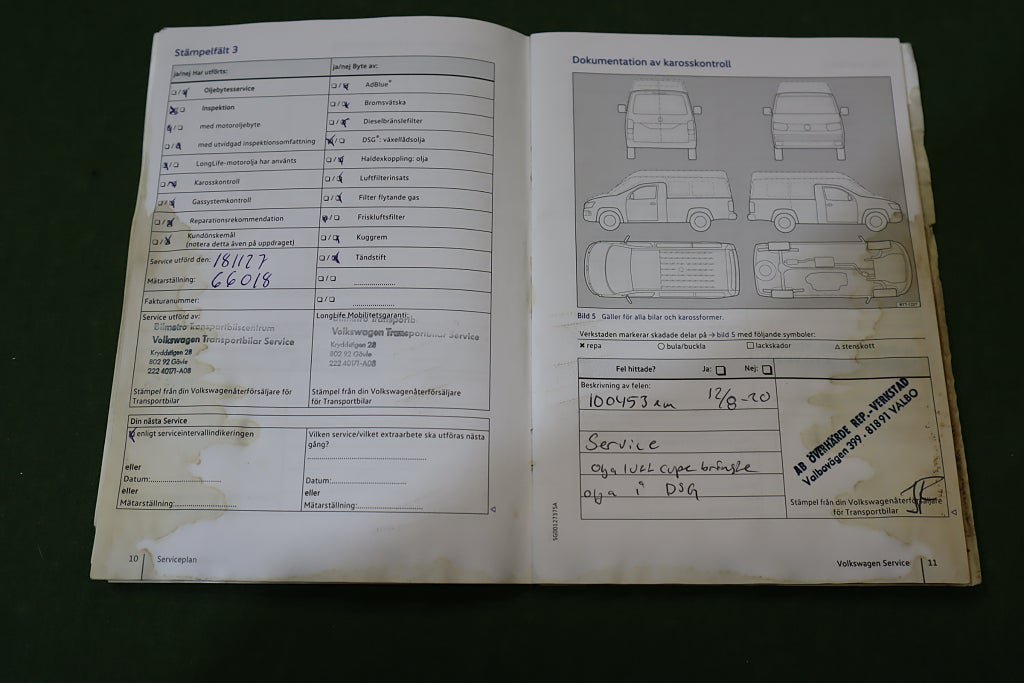 Stämpelfält 3
ja/nej Har utförts:
❏/❏ Oljebytesservice
❏/❏ Inspektion
❏/❏ med motoroljebyte
❏/❏ med utvidgad inspektionsomfattning
❏/❏ LongLife-motorolja har använts
❏/❏ Karosskontroll
❏/❏ Gassystemkontroll
❏/❏ Reparationsrekommendation
❏/❏ Kundönskemål
(notera detta även på uppdraget)
Service utförd den: 181127
Mätarställning: 66018
Fakturanummer:
ja/nej Byte av:
❏/❏ AdBlue®
❏/❏ Bromsvätska
❏/❏ Dieselbränslefilter
❏/❏ DSG®: växellådsolja
❏/❏ Haldexkoppling: olja
❏/❏ Luftfilterinsats
❏/❏ Filter flytande gas
❏/❏ Friskluftsfilter
❏/❏ Kuggrem
❏/❏ Tändstift
❏/❏
❏/❏ ....................
Service utförd av:
Bilmetro Transportbilscentrum
Volkswagen Transportbilar Service
Kryddstigen 28
802 92 Gävle
222 40171-A08
Stämpel från din Volkswagenåterförsäljare för
Transportbilar
LongLife Mobilitetsgaranti:
Volkswagen Transportbilar Service
Kryddstigen 28
802 92 Gävle
222 40171-A08
Stämpel från din Volkswagenåterförsäljare
för Transportbilar
Din nästa Service
❏ enligt serviceintervallindikeringen
eller
Datum:....................
eller
Mätarställning:....................
Vilken service/vilket extraarbete ska utföras nästa
gång?
Datum:....................
eller
Mätarställning:....................
10 Serviceplan
Dokumentation av karosskontroll
Bild 5 Gäller för alla bilar och karossformer.
Verkstaden markerar skadade delar på → bild 5 med följande symboler:
✖ repa ○ bula/buckla □ lackskador △ stenskott
Fel hittade? Ja: ❏ Nej: ❏
Beskrivning av felen:
100453 km 12/8-20
Service
olja luft cupe bränsle
olja i DSG
AB ÖVERHÄRDE REP.-VERKSTAD
Valbovägen 399 · 81891 VALBO
Stämpel från din Volkswagenåterförsäljare
för Transportbilar
5G0012737SA
Volkswagen Service 11